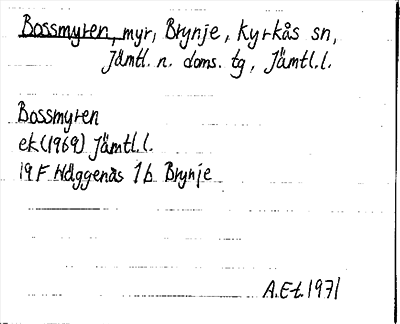 Bossmyren, myr, Brynje, Kyrkås sn,
Jämtl. n. doms. tg, Jämtl.l.
Bossmyren
ek (1969) Jämtl.l.
19F Häggenås 1b Brynje
A.E-t. 1971